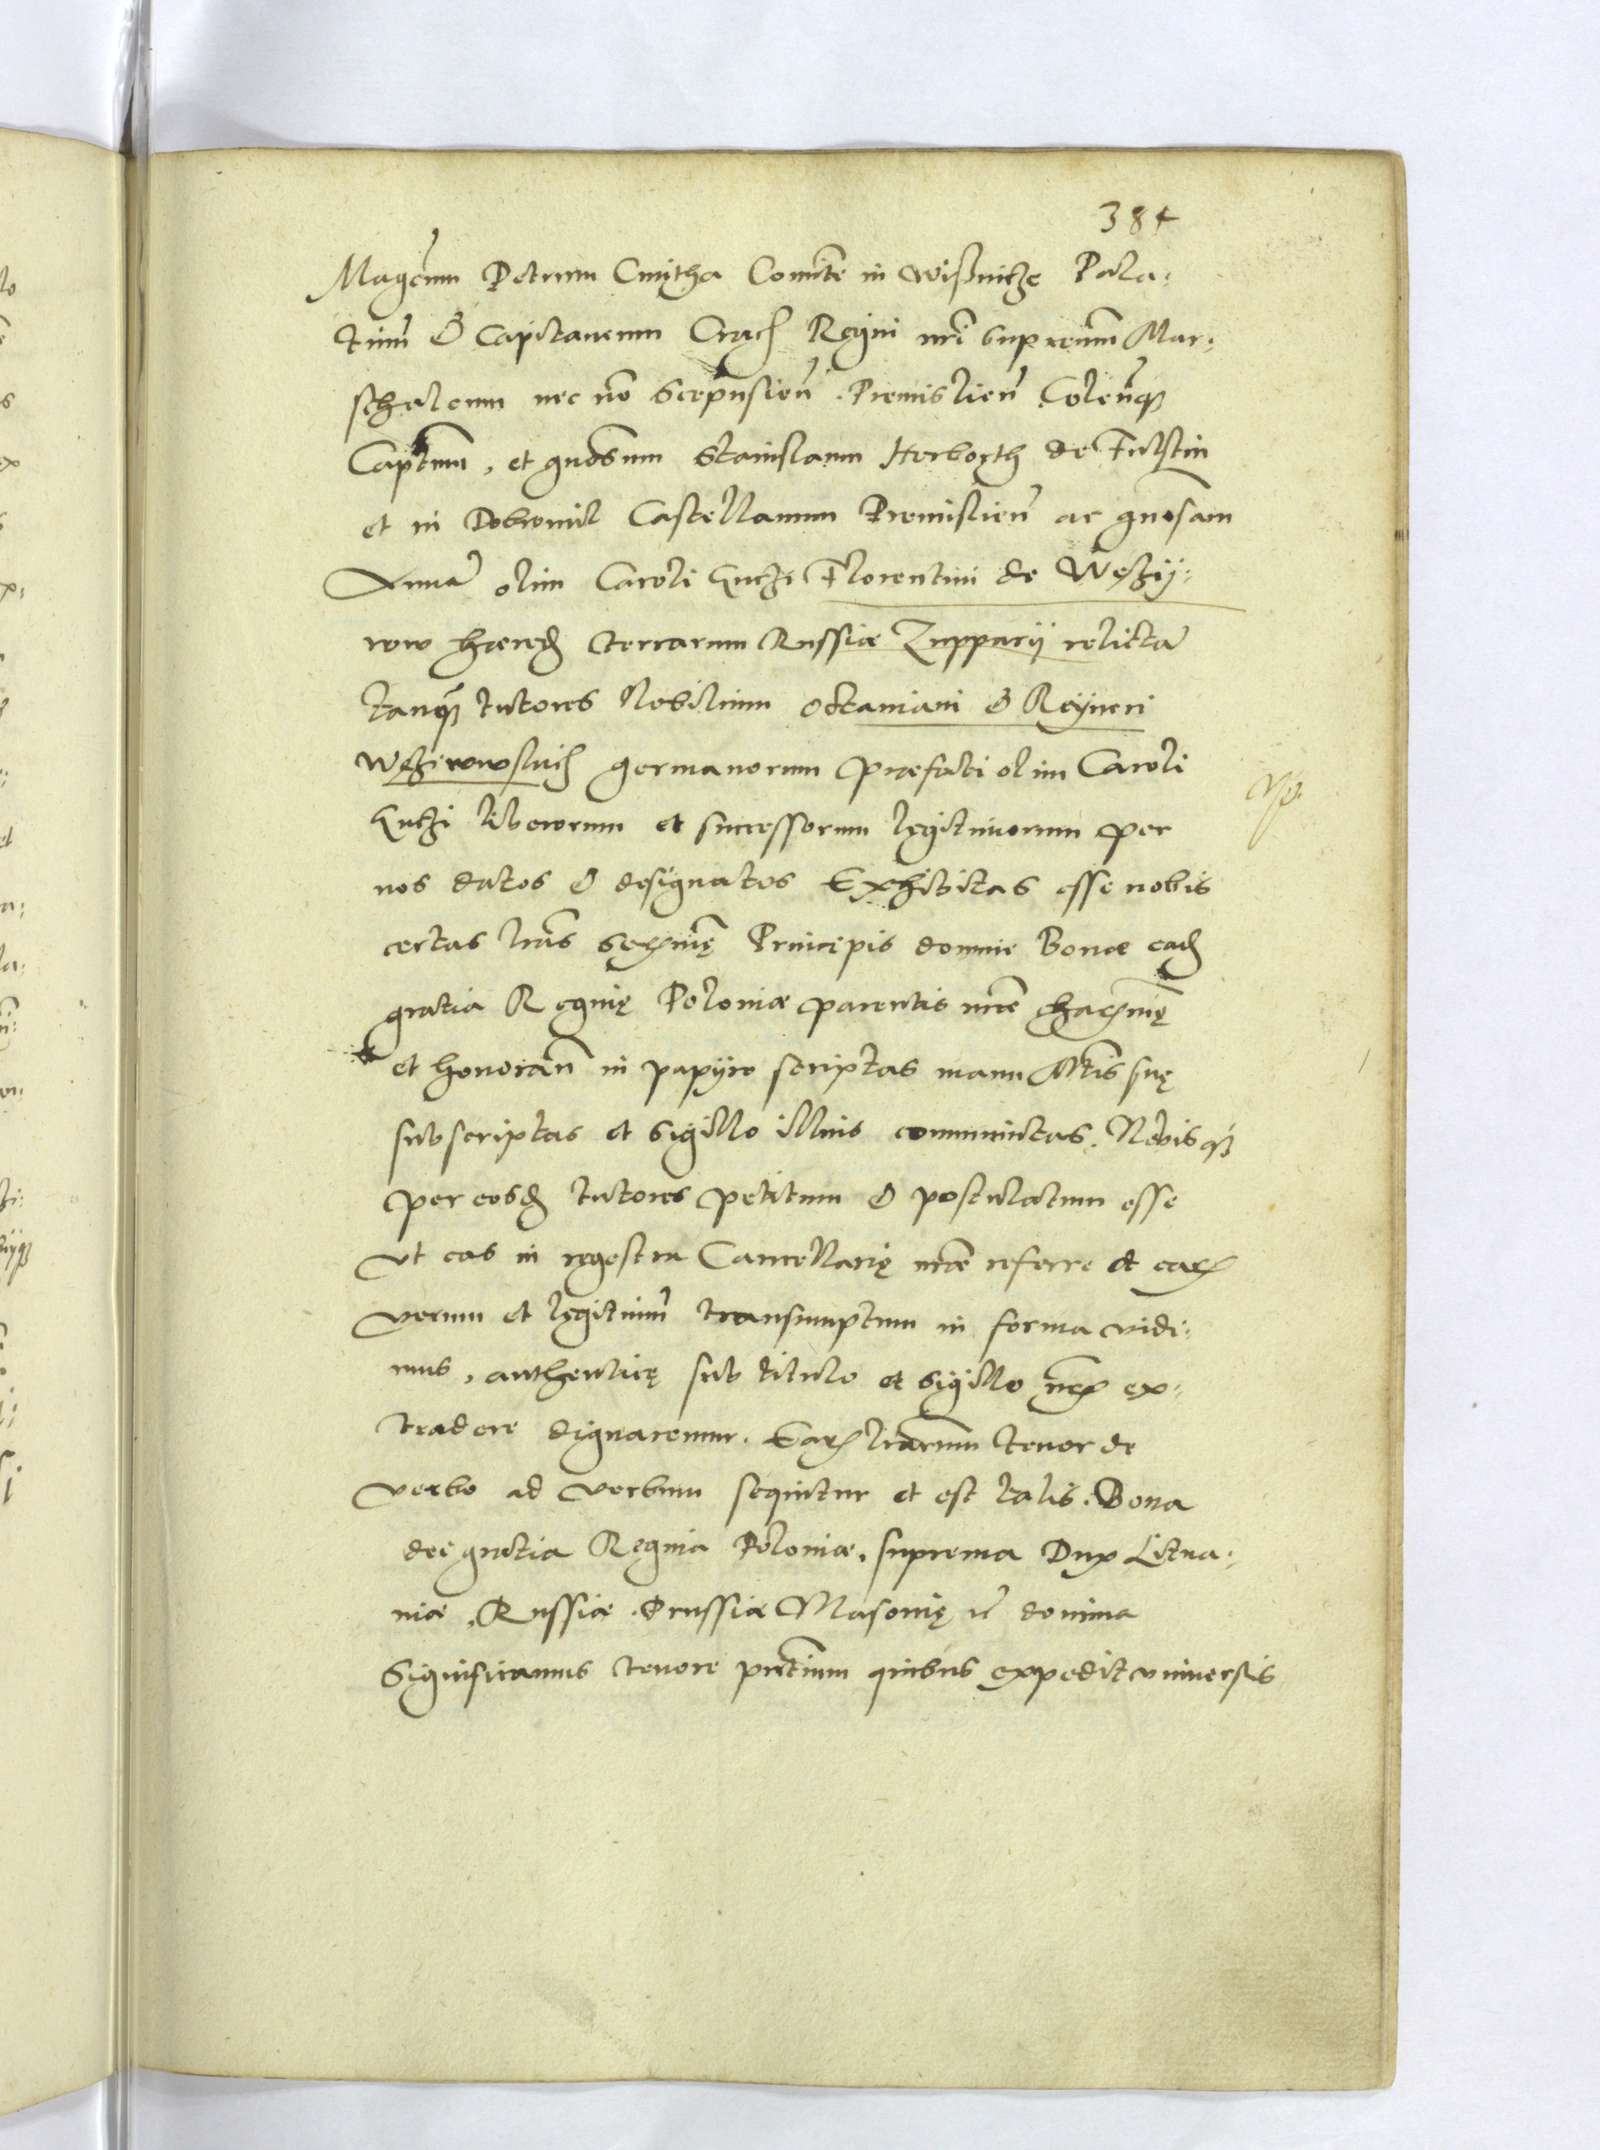 384
Magcum Petrum Cmytha Comite in Wißnicze Pala-
tinu et Capitaneum Crac Regni nri Supremum Mar-
schalcum nec no Scepusien Premislien Colenque
Captmm, et gnosum Stanislaum Herborth de Fulstin
et in Dobromil Castellanum Premislien ac gnosam
Anna olim Caroli Luczi Florentini de Wezÿ-
row hæred terrarum Russiæ Zupparÿ relicta
tanq tutores Nobilium Octaviani et Reyneri
Wezirowskich germanorum præfati olim Caroli
Luczi liberorum et successorum legitimorum per
nos datos et designatos Exhibitas esse nobis
certas lras serme Principis domine Bonæ ead
gratia Reginę Poloniæ parentis nræ charmę
et honoran in papyro scriptas manu Mtis suę
subscriptas et Sigillo illius communitas. Nobisq
per eosd tutores petitum et postulatum esse
Vt eas in regestra Cancellarię nræ referre et ear
verum et legitimu transumptum in forma vidi-
mus, authenticę sub titulo et sigillo nro ex-
tradere dignaremur. Ear lrarum tenor de
verbo ad verbum sequitur et est talis. Bona
dei gratia Regina Poloniæ, suprema Dux Litua-
niæ, Russiæ Prussiæ Masovię etc domina
Significamus tenore prntium quibus expedit vniversis